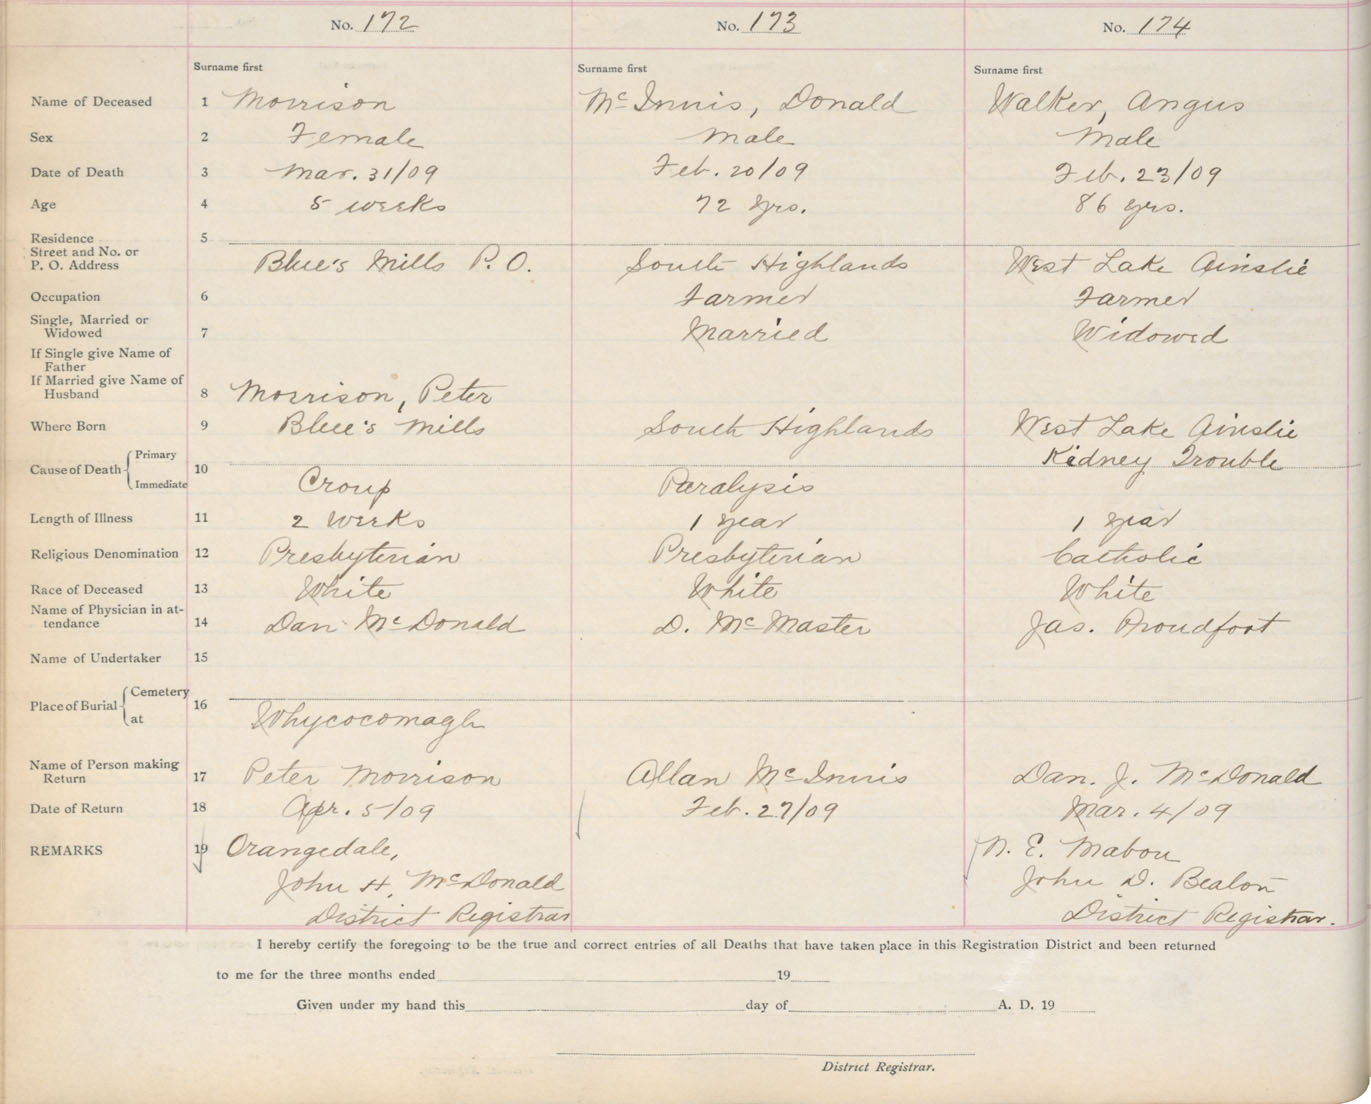 No. 172 No. 173 No. 174
Surname first Surname first Surname first
Name of Deceased 1 Morrison McInnis, Donald Walker, Angus
Sex 2 Female Male Male
Date of Death 3 Mar. 31/09 Feb. 20/09 Feb. 23/09
Age 4 5 weeks 72 yrs. 86 yrs.
Residence 5
Street and No. or
P. O. Address Blue's Mills P. O. South Highlands West Lake Ainslie
Occupation 6 Farmer Farmer
Single, Married or
Widowed 7 Married Widowed
If Single give Name of
Father
If Married give Name of
Husband 8 Morrison, Peter
Where Born 9 Blue's Mills South Highlands West Lake Ainslie
Cause of Death Primary 10 Kidney Trouble
Immediate Croup Paralysis
Length of Illness 11 2 weeks 1 year 1 year
Religious Denomination 12 Presbyterian Presbyterian Catholic
Race of Deceased 13 White White White
Name of Physician in at-
tendance 14 Dan McDonald D. McMaster Jas. Proudfoot
Name of Undertaker 15
Place of Burial Cemetery 16
at Whycocomagh
Name of Person making
Return 17 Peter Morrison Allan McInnis Dan. J. McDonald
Date of Return 18 Apr. 5/09 Feb. 27/09 Mar. 4/09
REMARKS 19 Orangedale, N. E. Mabou
John H. McDonald John D. Beaton
District Registrar District Registrar.
I hereby certify the foregoing to be the true and correct entries of all Deaths that have taken place in this Registration District and been returned
to me for the three months ended 19
Given under my hand this day of A. D. 19
District Registrar.